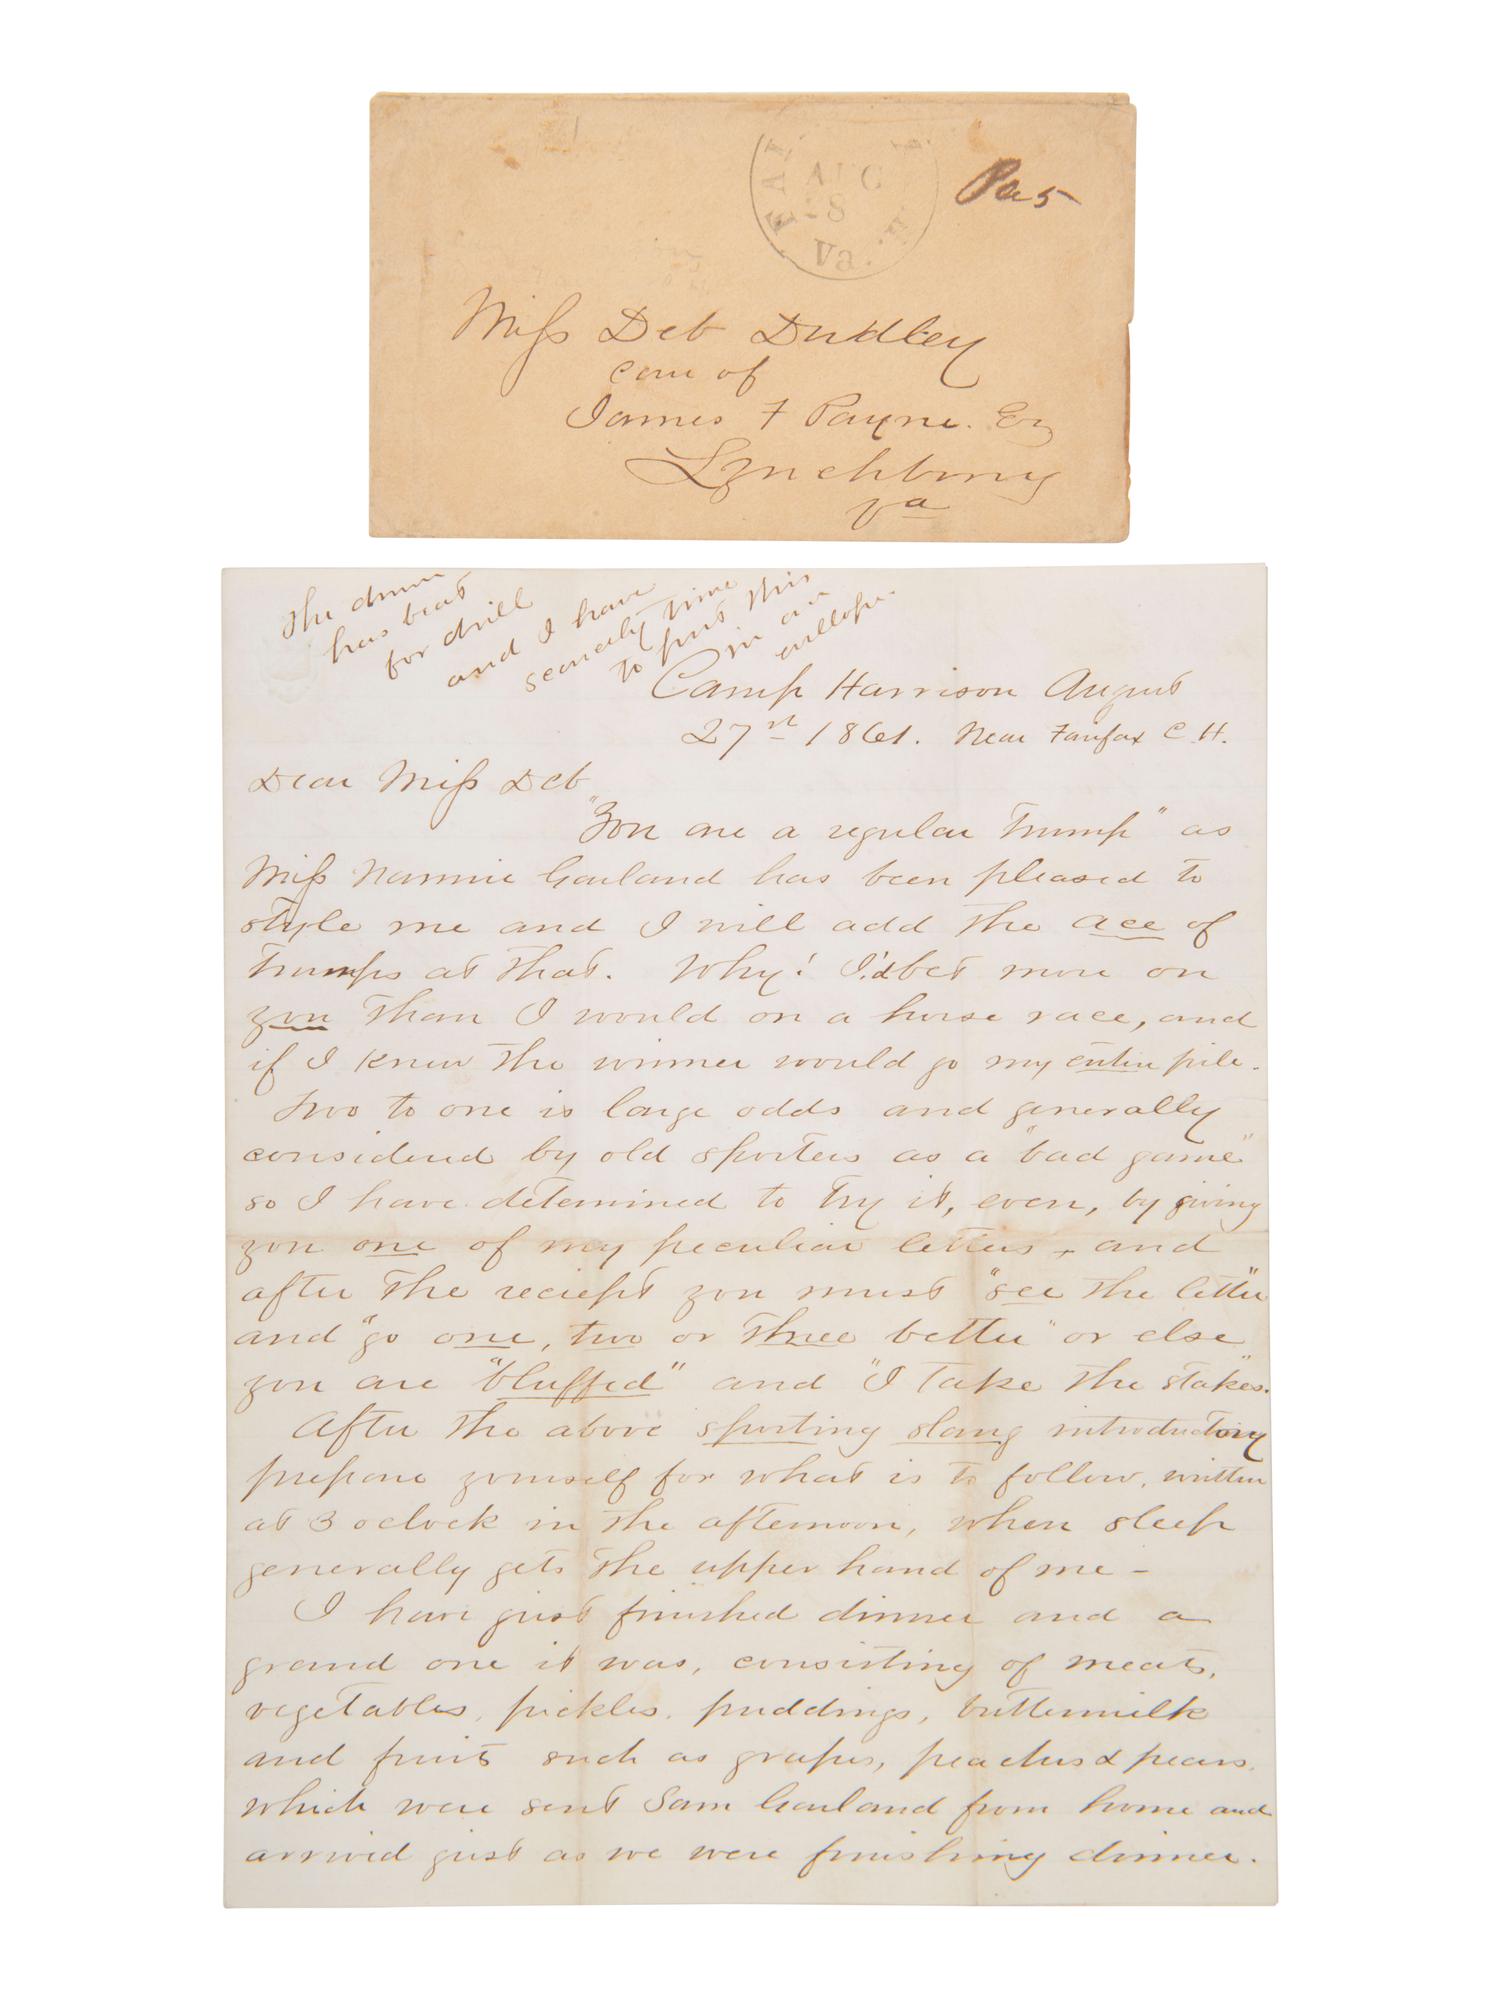 FAI
AUG
28
Va.
H.
Pa 5
Miss Deb Dudley
care of
James F Payne. Esq
Lynchburg
Va
The drum
has beat
for drill
and I have
scarcely time
to put this
in an
envellope.
Camp Harrison August
27st 1861. Near Fairfax C. H.
Dear Miss Deb
"You are a regular Trump" as
Miss Nannie Garland has been pleased to
style me and I will add the ace of
Trumps at that. Why! I'd bet more on
you than I would on a horse race, and
if I knew the winner would go my entire pile.
Two to one is large odds and generally
considered by old sporters as a "bad game"
so I have determined to try it, even, by giving
you one of my peculiar letters, and
after the reciept you must "see the letter"
and "go one, two or three better" or else
you are "bluffed" and "I take the stakes".
After the above sporting slang introductory
prepare yourself for what is to follow, written
at 3 oclock in the afternoon, when sleep
generally gets the upper hand of me -
I have just finished dinner and a
grand one it was, consisting of meats,
vegetables, pickles, puddings, buttermilk
and fruits such as grapes, peaches & pears.
which were sent Sam Garland from home and
arrived just as we were finishing dinner.